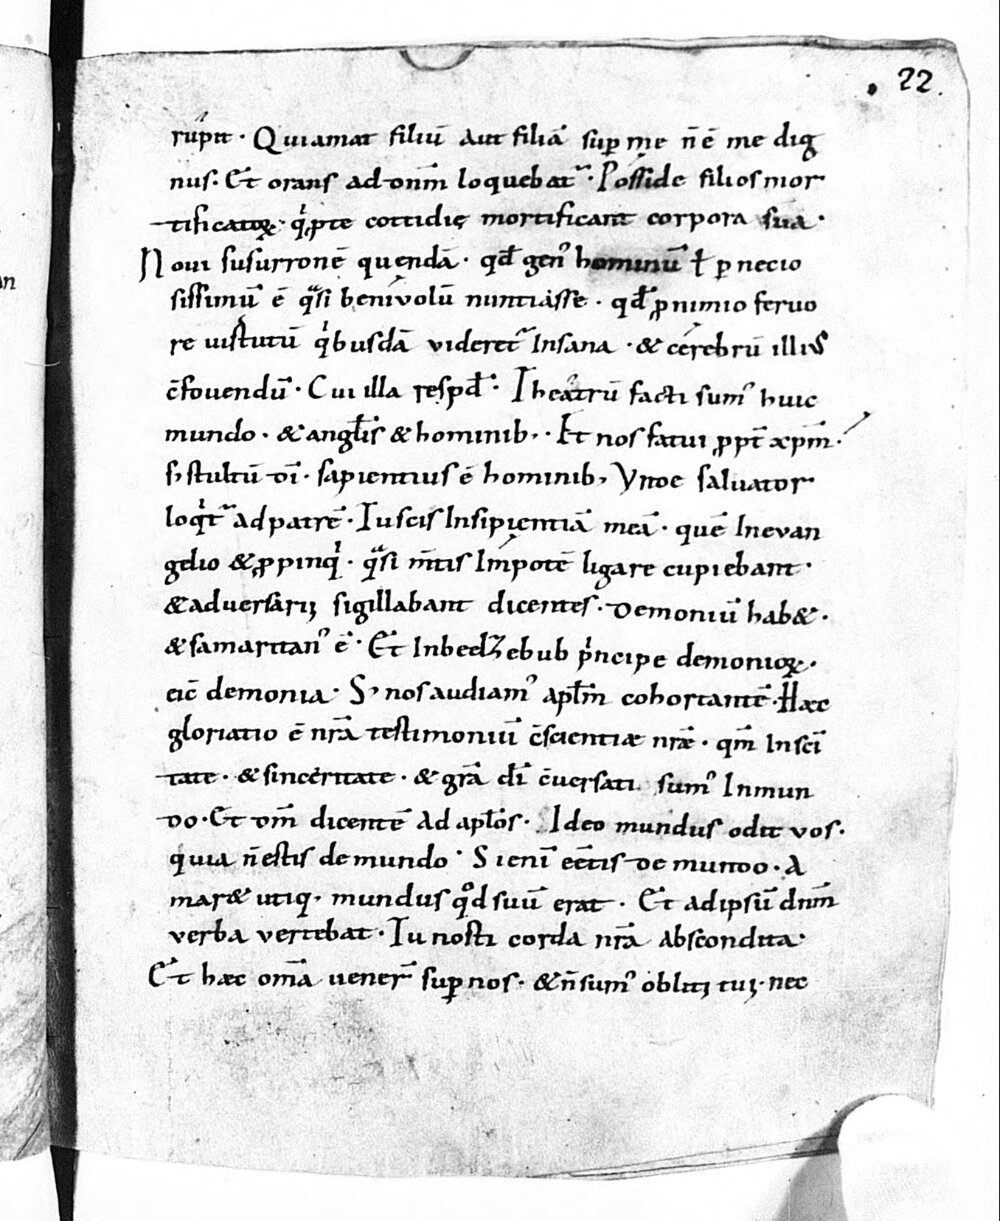 22.
rupit · Qui amat filiū aut filiā sup me n̄ ē me dig
nus · Et orans ad dnm̄ loquebat᷑ · Posside filios mor
tificatoꝝ · q̍ ꝓpte cottidię mortificant corpora sua ·
Noui susurronē quendā · qđ gen᾽ hominū ł p necio
sissimū ē q̄si benivolū nuntiasse · qđ ꝓ nimio feruo
re uirtutū q̍busdā videret᷑ Insana · & cerebrū illi᾽
c̄fouendū · Cui illa respđ · Theatrū facti sum᾽ huic
mundo · & angl̄is & hominib; · Et nos fatui ꝓpt̄ xpm̄ ·
s; stultū di᷑ · sapientius ē hominib; Vnde saluator
loq̍t᷑ ad patrē · Tu scis Insipientiā meā · quē In evan
gelio & ꝓpinq̍ · q̄si m̄tis Impotē ligare cupiebant ·
& adversarii sigillabant dicentes · Demoniū hab& ·
& samaritan᾽ ē · Et In beelzebub p̍ncipe demonioꝝ ·
eic̄ demonia · S; nos audiam᾽ apl̄m cohortantē · Haec
gloriatio ē nr̄a testimoniū c̄scientiae nr̄ae · qm̄ In sc̄i
tate · & sinceritate · & gr̄a dī c̄uersati sum᾽ In mun
do · Et dm̄ dicentē ad apl̄os · Ideo mundus odit vos ·
quia n̄ estis de mundo · Si eni᷑ eētis de mundo · A
mar& utiq; mundus qd̊ suū erat · Et ad ipsū dnm̄
verba vertebat · Tu nosti corda nr̄a abscondita ·
Et haec om̄a uener᷑ sup nos · & n̄ sum᾽ obliti tui · nec